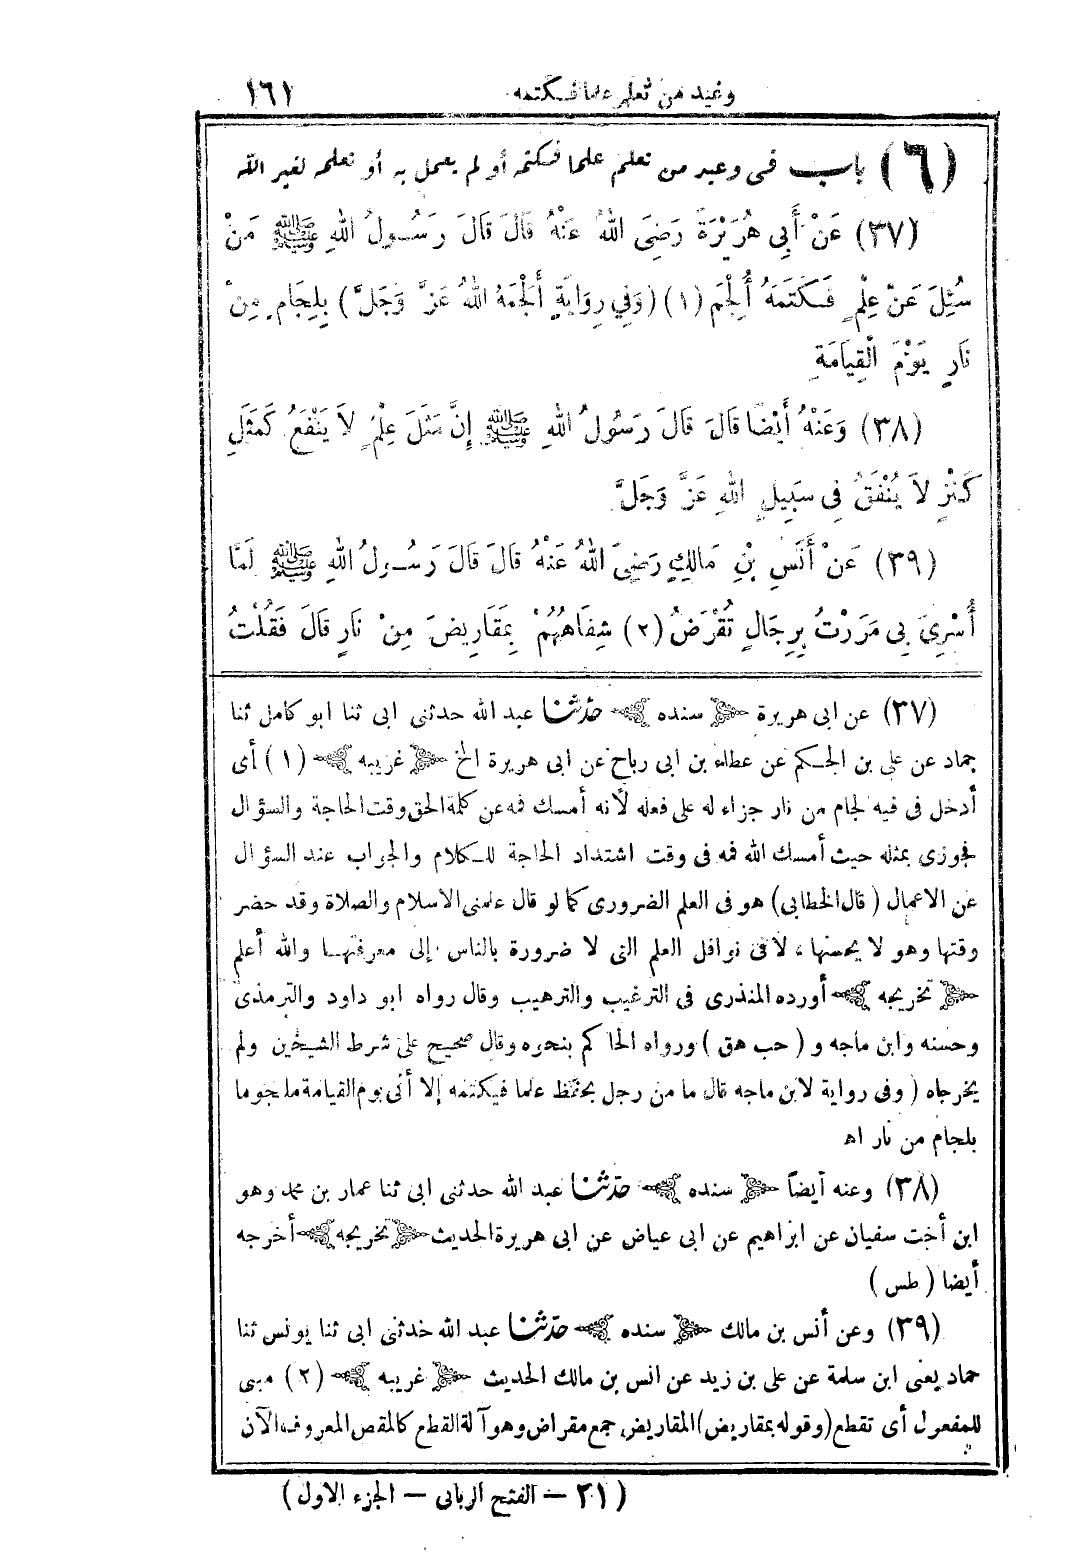 وعيد من تعلم علما فكتمه ١٦١
(٦) باب في وعيد من تعلم علما فكتمه أو لم يعمل به أو تعلمه لغير الله
(٣٧) عَنْ أَبِي هُرَيْرَةَ رَضِيَ اللهُ عَنْهُ قَالَ قَالَ رَسُولُ اللهِ ﷺ مَنْ
سُئِلَ عَنْ عِلْمٍ فَكَتَمَهُ أُلْجِمَ (١) (وَفِي رِوَايَةٍ أَلْجَمَهُ اللهُ عَزَّ وَجَلَّ) بِلِجَامٍ مِنْ
نَارٍ يَوْمَ الْقِيَامَةِ
(٣٨) وَعَنْهُ أَيْضًا قَالَ قَالَ رَسُولُ اللهِ ﷺ إِنَّ مَثَلَ عِلْمٍ لاَ يَنْفَعُ كَمَثَلِ
كَنْزٍ لاَ يُنْفَقُ فِي سَبِيلِ اللهِ عَزَّ وَجَلَّ
(٣٩) عَنْ أَنَسِ بْنِ مَالِكٍ رَضِيَ اللهُ عَنْهُ قَالَ قَالَ رَسُولُ اللهِ ﷺ لَمَّا
أُسْرِيَ بِي مَرَرْتُ بِرِجَالٍ تُقْرَضُ (٢) شِفَاهُهُمْ بِمَقَارِيضَ مِنْ نَارٍ قَالَ فَقُلْتُ
(٣٧) عن ابى هريرة ﴿ سنده ﴾ حدثنا عبد الله حدثنى ابى ثنا ابو كامل ثنا
حماد عن على بن الحكم عن عطاء بن ابى رباح عن ابى هريرة الخ ﴿ غريبه ﴾ (١) أى
أدخل فى فيه لجام من نار جزاء له على فعله لأنه أمسك فمه عن كلمة الحق وقت الحاجة والسؤال
فجوزى بمثله حيث أمسك الله فمه فى وقت اشتداد الحاجة للكلام والجواب عند السؤال
عن الاعمال (قال الخطابى) هو فى العلم الضرورى كما لو قال علمنى الاسلام والصلاة وقد حضر
وقتها وهو لا يحسنها، لا فى نوافل العلم التى لا ضرورة بالناس إلى معرفتها والله أعلم
﴿ تخريجه ﴾ أورده المنذرى فى الترغيب والترهيب وقال رواه ابو داود والترمذى
وحسنه وابن ماجه و (حب هق) ورواه الحاكم بنحوه وقال صحيح على شرط الشيخين ولم
يخرجاه (وفى رواية لابن ماجه قال ما من رجل يحفظ علما فيكتمه إلا أتى يوم القيامة ملجوما
بلجام من نار اه
(٣٨) وعنه أيضاً ﴿ سنده ﴾ حدثنا عبد الله حدثنى ابى ثنا عمار بن محمد وهو
ابن أخت سفيان عن ابراهيم عن ابى عياض عن ابى هريرة الحديث ﴿ تخريجه ﴾ أخرجه
أيضا (طس)
(٣٩) وعن أنس بن مالك ﴿ سنده ﴾ حدثنا عبد الله حدثنى ابى ثنا يونس ثنا
حماد يعنى ابن سلمة عن على بن زيد عن انس بن مالك الحديث ﴿ غريبه ﴾ (٢) مبنى
للمفعول أى تقطع (وقوله بمقاريض) المقاريض جمع مقراض وهو آلة القطع كالمقص المعروف الآن
(٢١ — الفتح الربانى — الجزء الاول)